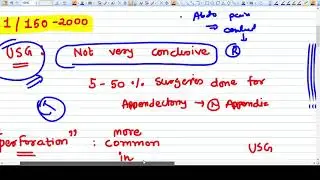 1/150-2000
Abdo pain
⇒ central
USG Not very conclusive (R)
5-50 % Surgeries done for
Appendectomy → (N) Appendix
perforation" : more
common
in
USG